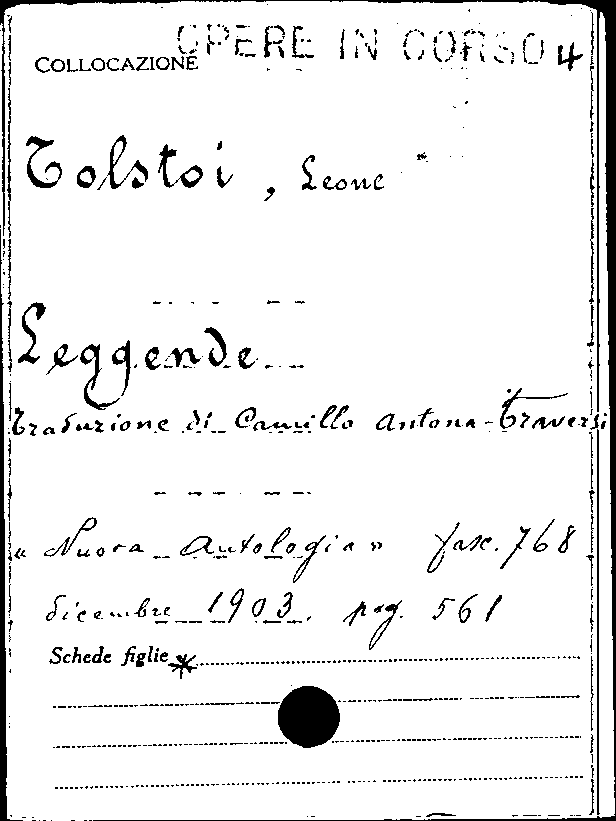 OPERE IN CORSO 4
COLLOCAZIONE
Tolstoi, Leone *
Leggende
Traduzione di Camillo Antona-Traversi
« Nuova Antologia » fasc. 768
dicembre 1903. pag. 561
Schede figlie *